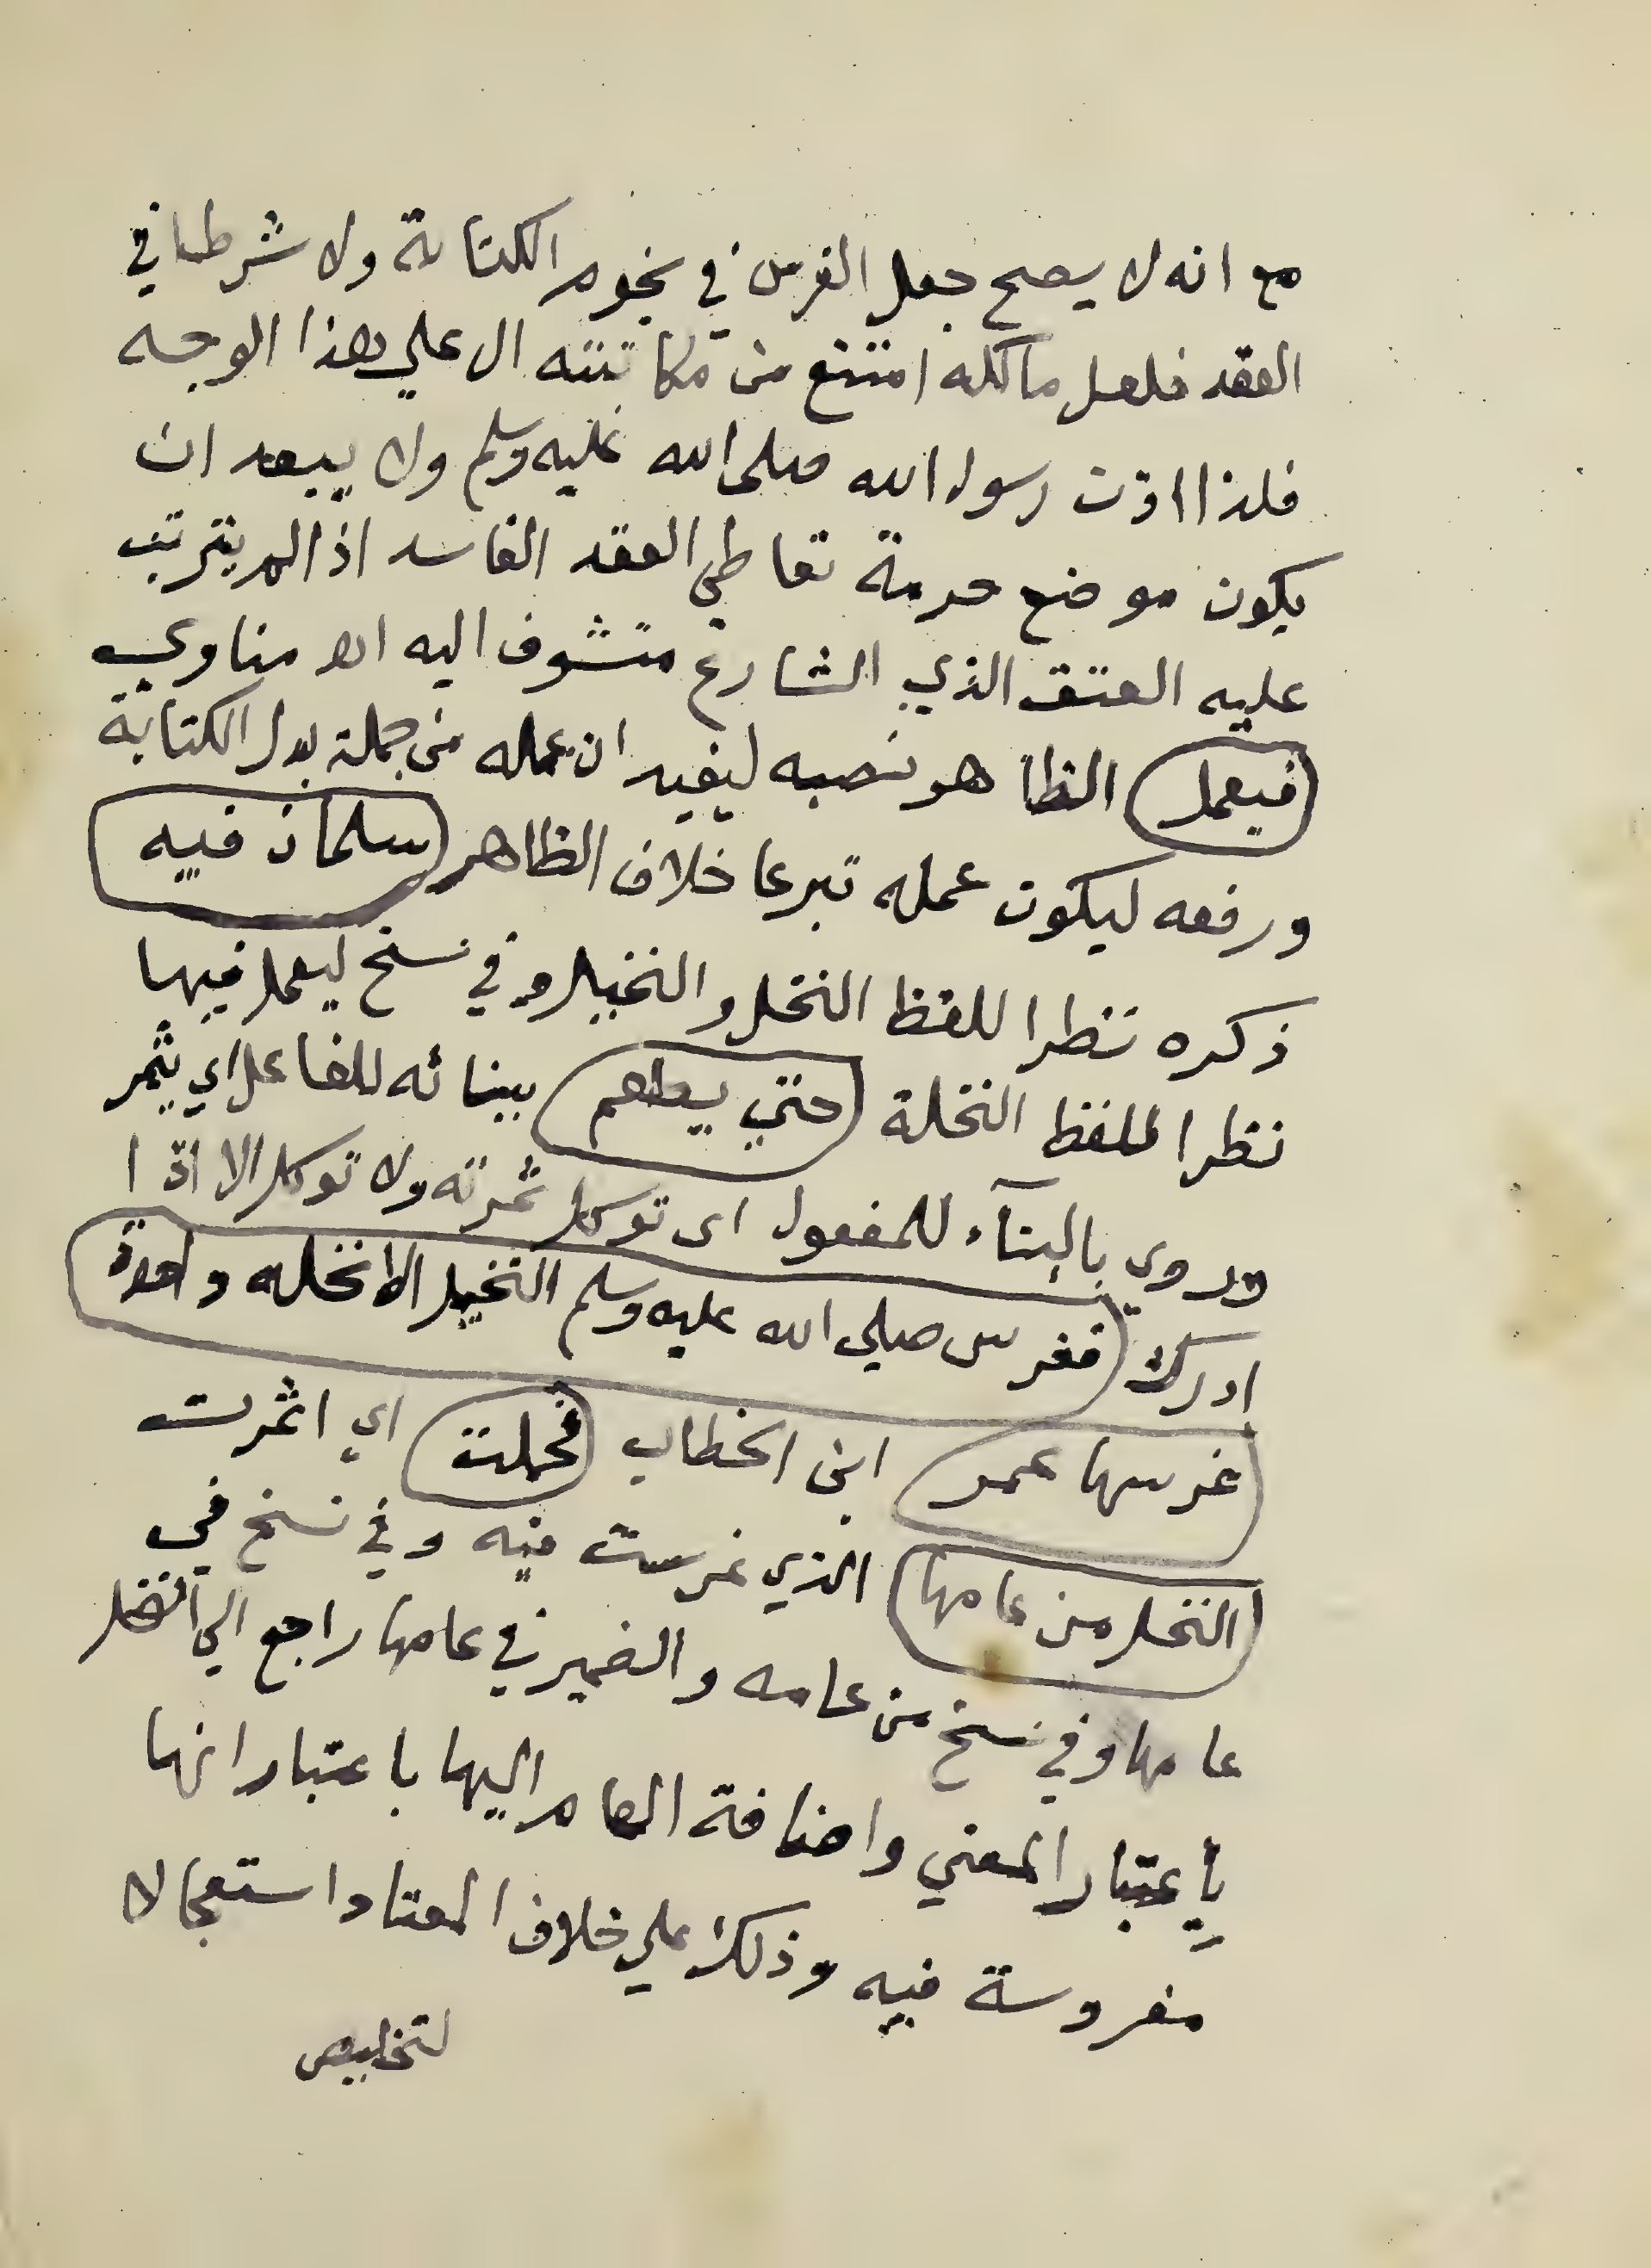 مع انه لا يصح جعل الغرس في نجوم الكتابة ولا شرطا في
العقد فلعل مالكه امتنع من مكاتبته ال علي هذا الوجه
فلذا اذن رسول الله صلى الله عليه وسلم ولا يبعد ان
يكون موضع حرمة تعاطي العقد الفاسد اذا لم يترتب
عليه العتق الذي الشارع متشوف اليه الا مناوي
فيعمل الظاهر نصبه ليفيد ان عمله من جملة بدل الكتابة
ورفعه ليكون عمله تبرعا خلاف الظاهر سلمان فيه
ذكره نظرا للفظ النخل والنخيل وفي نسخ ليعمل فيها
نظرا للفظ النخلة حتي يطعم ببنائه للفاعل اي يثمر
وروي بالبنآء للمفعول اى توكل ثمرته ولا توكل الا اذا
ادرك فغرس صلي الله عليه وسلم النخيل الا نخله واحدة
غرسها عمر ابن الخطاب فحملت اي اثمرت
النخل من عامها الذي غرست فيه وفي نسخ في
عامها وفي نسخ من عامه والضمير في عامها راجع الي النخل
باعتبار المعني واضافة العام اليها باعتبار انها
مغروسة فيه وذلك علي خلاف المعتاد استعجالا
لتخليص